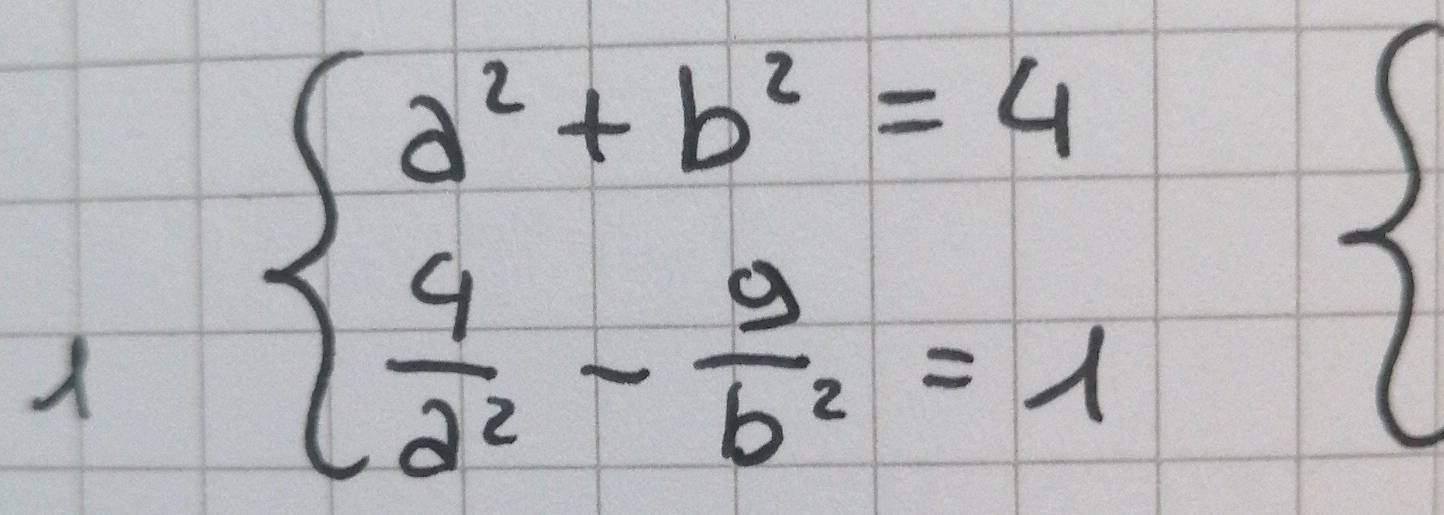 { a² + b² = 4 {
1 { 4/a² - 9/b² = 1